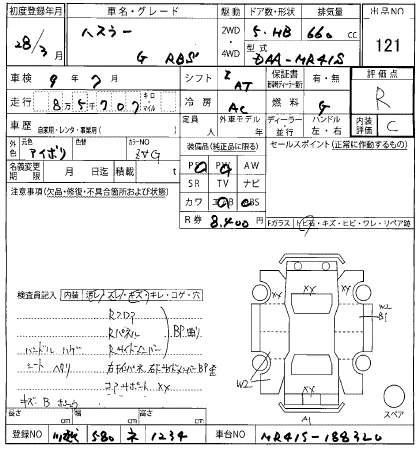 初度登録年月 車名・グレード 駆動 ドア数・形状 排気量 出品NO
28/3月 ハスラー 2WD 5・HB 660 cc 121
G 4WD 型式 DAA-MR41S
車検 9年7月 シフト AT 保証書 有・無 評価点
走行 85707 キロ・マイル 冷房 AC 燃料 G R
車歴 自家用・レンタ・事業用( ) 定員 人 外車モデル 年 ディーラー 並行 ハンドル 左・右 内装評価 C
外色 元色 アイボリ 色替 カラーNO ZVG 装備品(純正品に限る) セールスポイント(正常に作動するもの)
名義変更期限 月 日迄 積載 t PS PW AW
注意事項(欠品・修復・不具合箇所および状態) SR TV ナビ
カワ エアB ABS
R券 8,400円 Fガラス トビ石・キズ・ヒビ・ワレ・リペア跡
検査員記入 内装 汚レ/スレ/キズ/キレ・コゲ・穴
Rフロア
Rパネル BP曲り
ハンドル ハゲ Rサイドメンバー
シート ヘタリ
コアサポート XY
キズ B
XY XY XY
W2
B1
W2
A1
スペア
長さ cm 幅 cm 高さ cm
登録NO 川越 580 ネ 1234 車台NO MR41S-188320